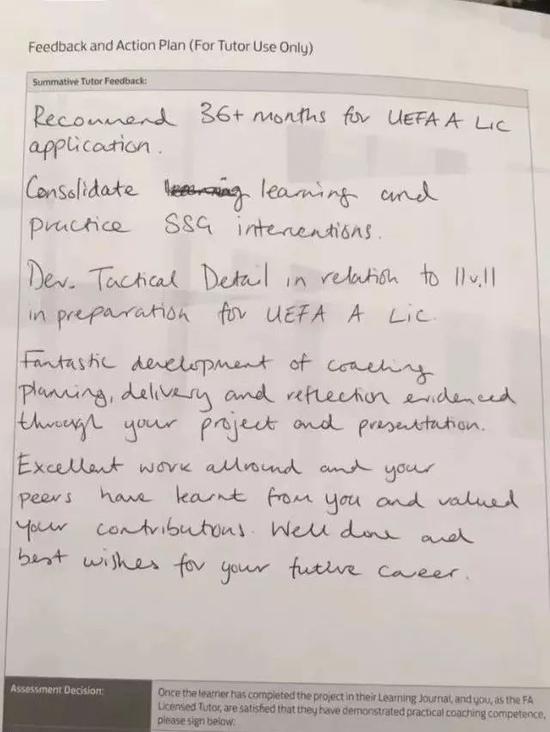 Feedback and Action Plan (For Tutor Use Only)
Summative Tutor Feedback:
Recommend 36+ months for UEFA A Lic
application.
Consolidate learning and
practice SSG interventions.
Dev. Tactical Detail in relation to 11v.11
in preparation for UEFA A Lic.
Fantastic development of coaching
planning, delivery and reflection evidenced
through your project and presentation.
Excellent work allround and your
peers have learnt from you and valued
your contributions. Well done and
best wishes for your future career.
Assessment Decision:
Once the learner has completed the project in their Learning Journal, and you, as the FA
Licensed Tutor, are satisfied that they have demonstrated practical coaching competence,
please sign below: